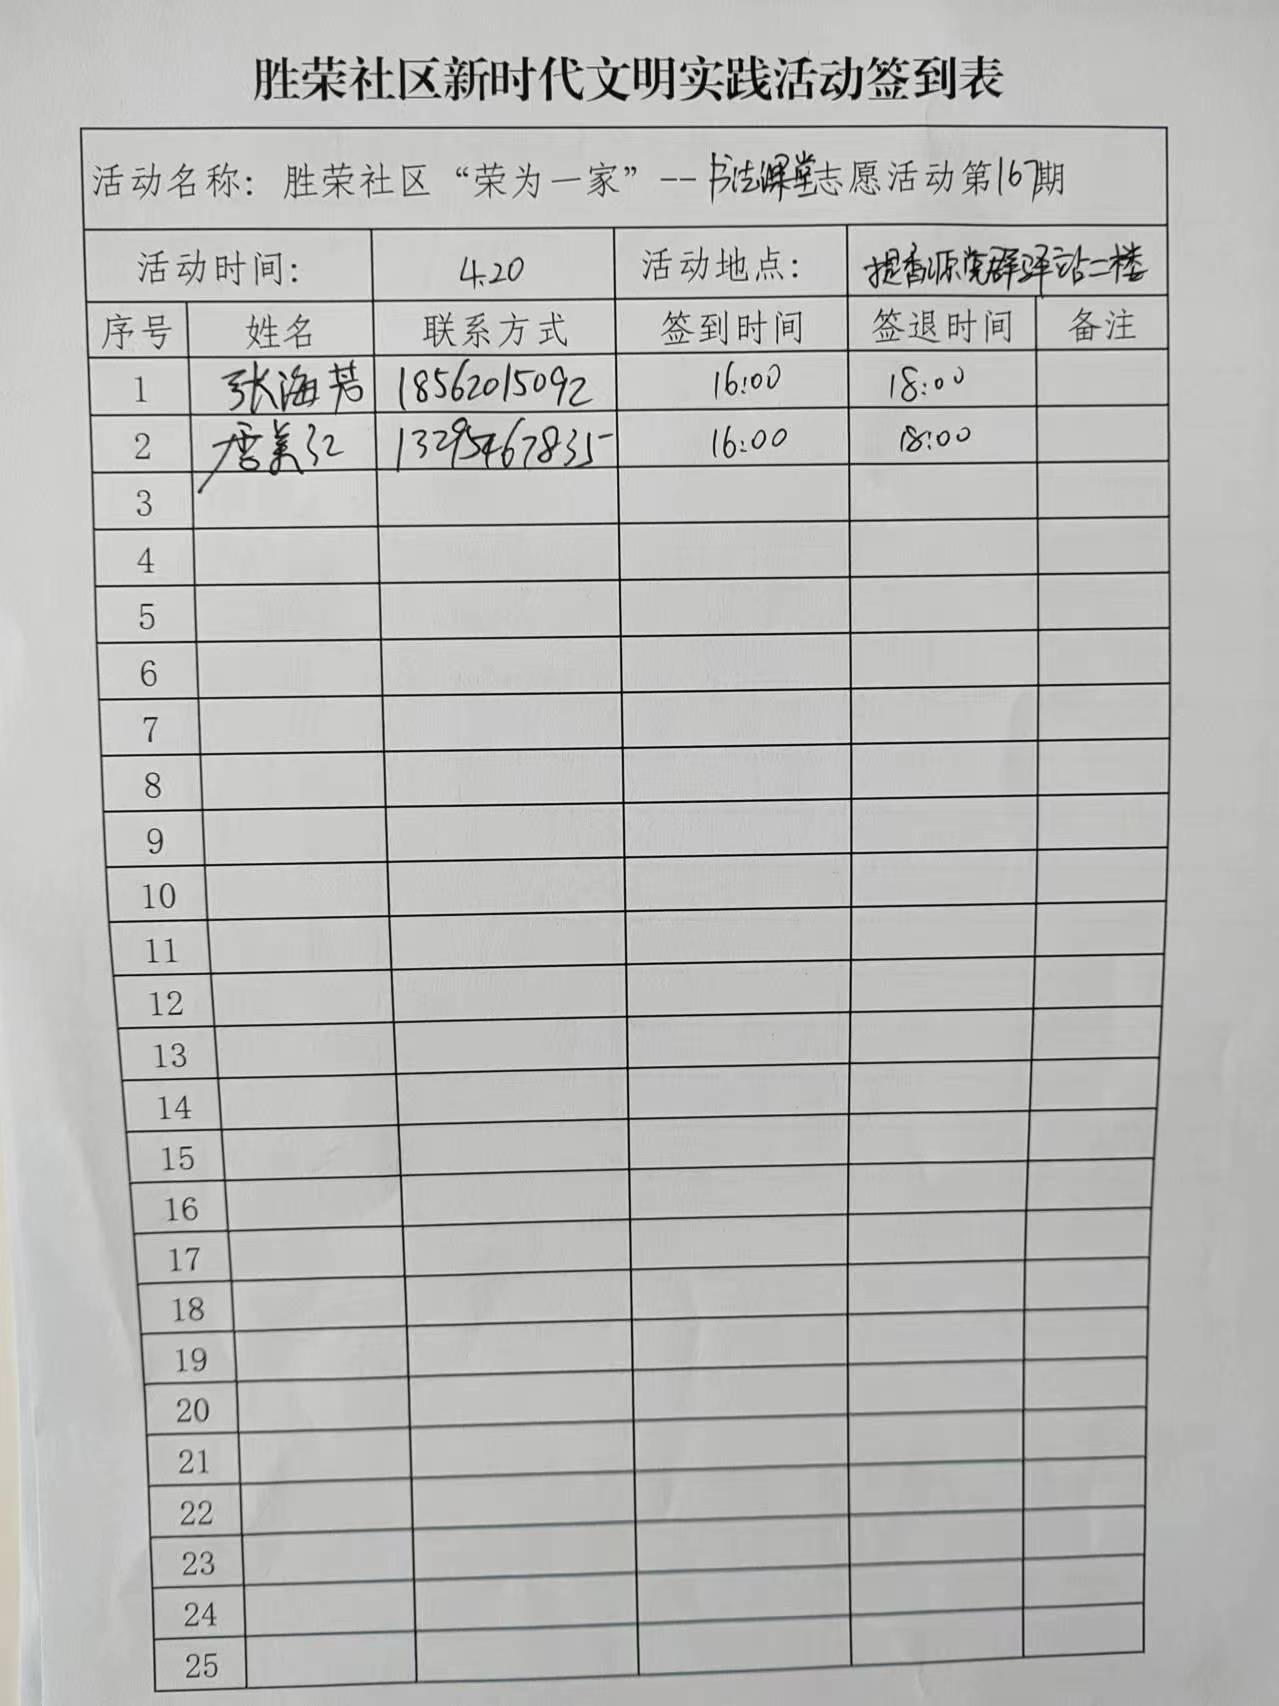 胜荣社区新时代文明实践活动签到表
活动名称：胜荣社区“荣为一家”--书法课堂志愿活动第167期
活动时间： 4.20 活动地点： 提香源党群驿站二楼
序号 姓名 联系方式 签到时间 签退时间 备注
1 张海芳 18562015092 16:00 18:00
2 唐美红 13295467835 16:00 18:00
3
4
5
6
7
8
9
10
11
12
13
14
15
16
17
18
19
20
21
22
23
24
25